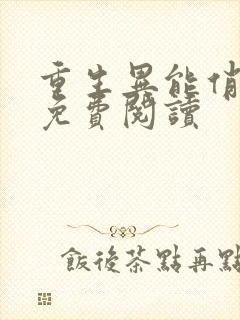 重生異能俏
免費閱讀
飯後茶點再點